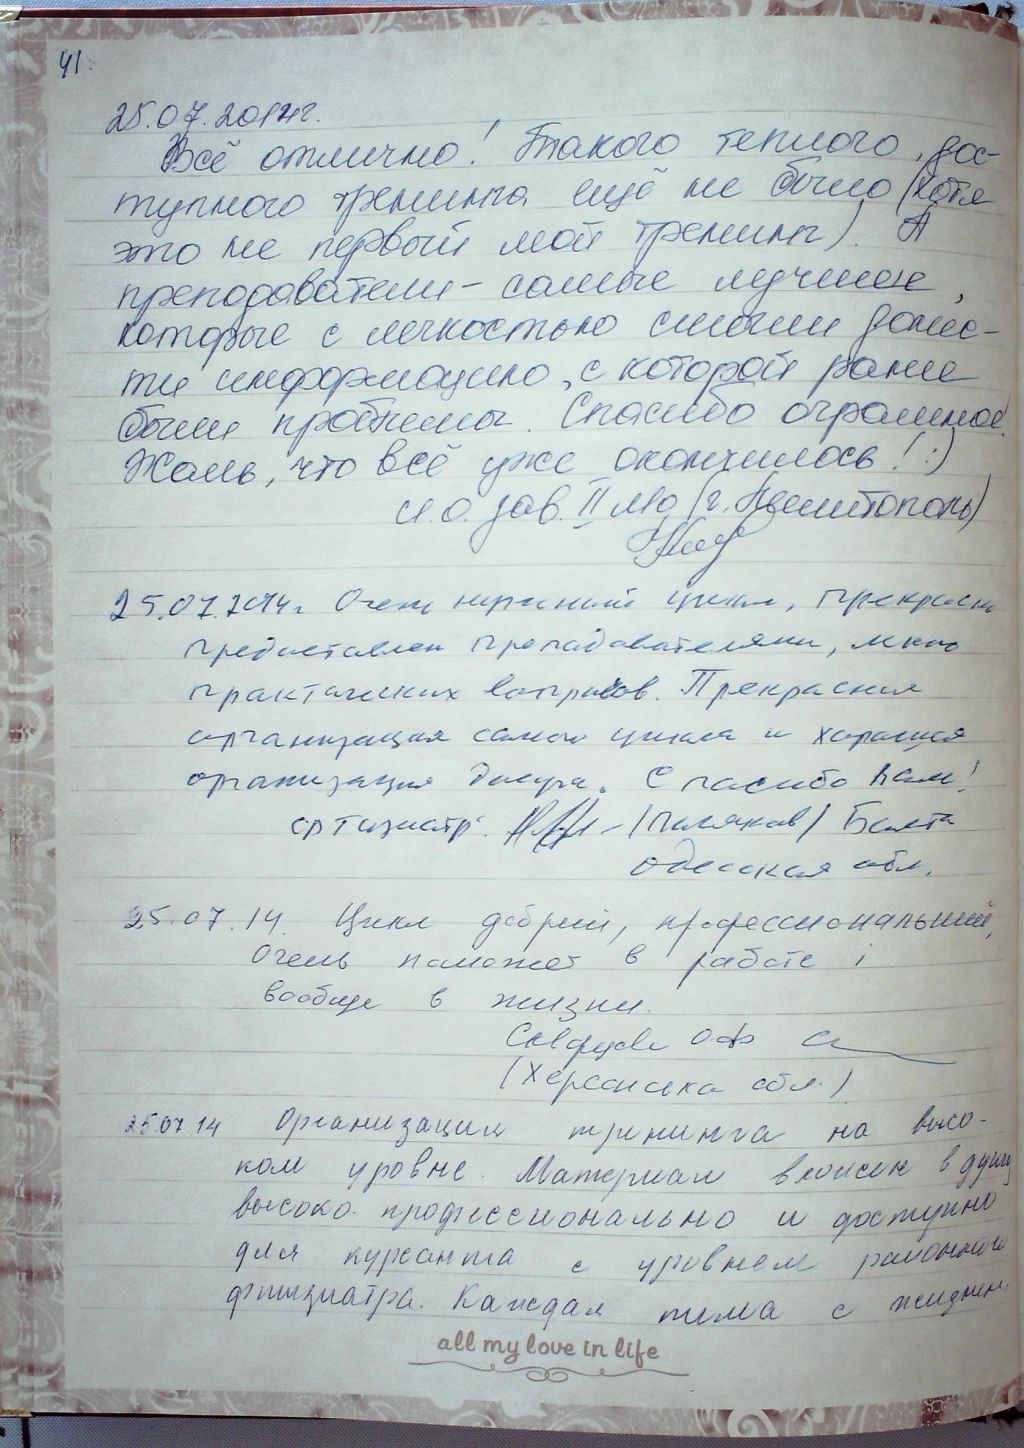 41.
25.07.2014г.
Всё отлично! Такого теплого, дос-
тупного тренинга ещё не было (хотя
это не первый мой тренинг). А
преподаватели – самые лучшие,
которые с легкостью смогли донес-
ти информацию, с которой ранее
были проблемы. Спасибо огромное!
Жаль, что всё уже окончилось! :)
И.О. зав. II (г. Мелитополь)
25.07.2014г. Очень нужный цикл, прекрасно
предоставлен преподавателями, много
практических вопросов. Прекрасная
организация самого цикла и хорошая
организация досуга. Спасибо Вам!
фтизиатр (Поляков) Балта
Одесская обл.
25.07.14. Цикл добрий, професиональний,
Очень поможет в работе і
вообще в жизни.
О.Ф.
(Херсонська обл.)
25.07 14 Организация тренинга на высо-
ком уровне. Материал вложен в душу
высоко профессионально и доступно
для курсанта с уровнем районного
фтизиатра. Каждая тема с
all my love in life